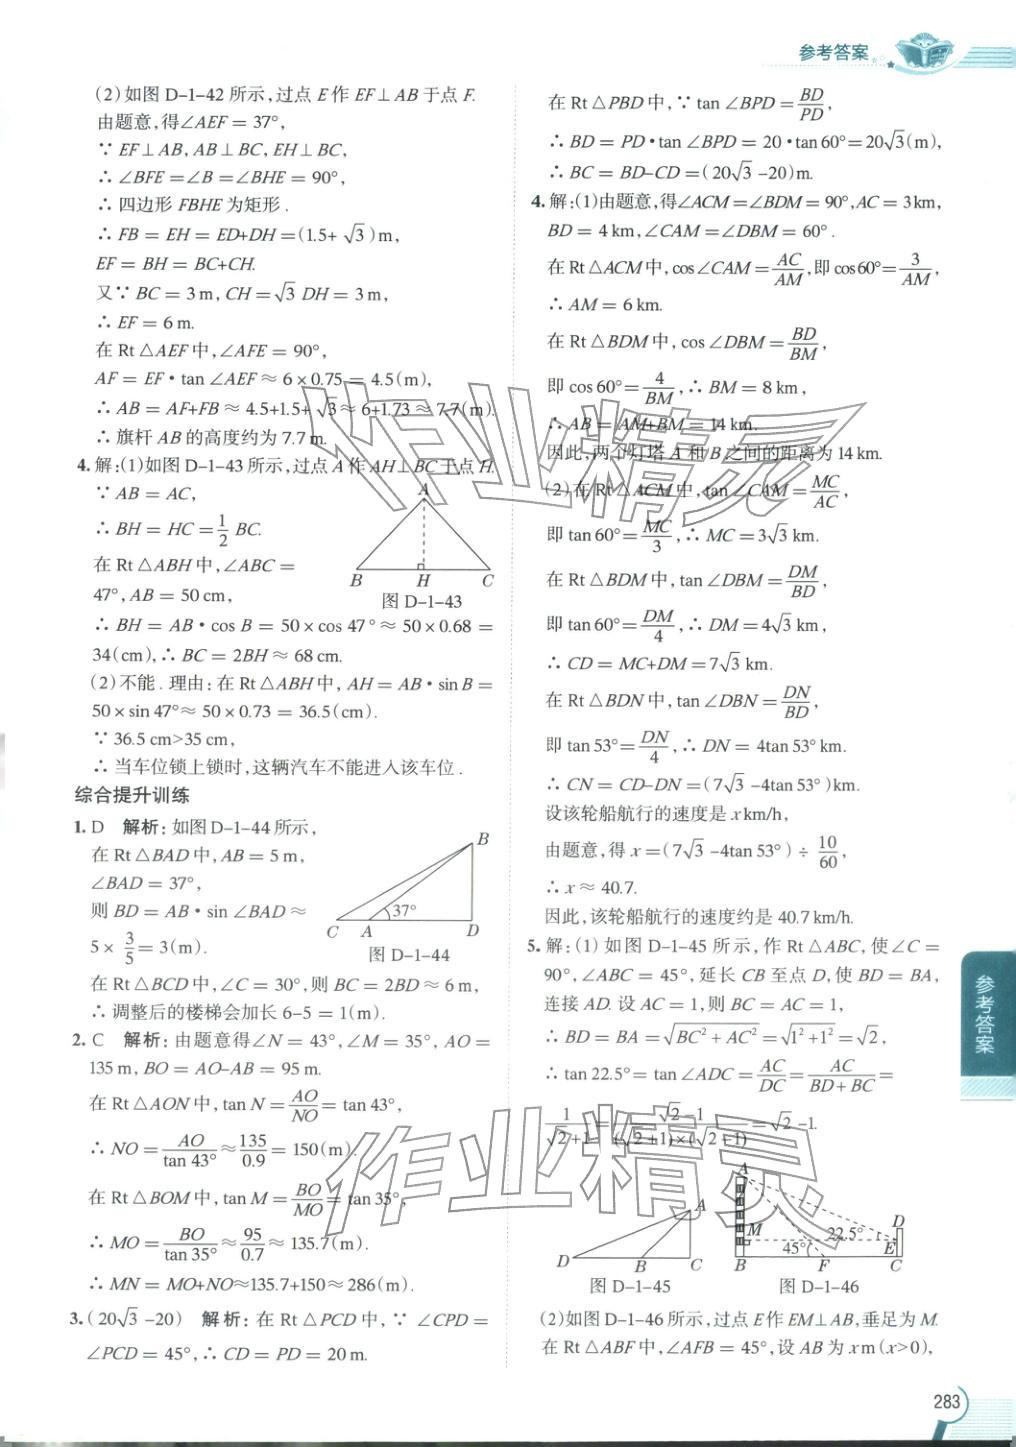 参考答案
(2)如图 D-1-42 所示,过点 E 作 EF⊥AB 于点 F.
由题意,得∠AEF = 37°,
∵ EF⊥AB, AB⊥BC, EH⊥BC,
∴ ∠BFE = ∠B = ∠BHE = 90°,
∴ 四边形 FBHE 为矩形.
∴ FB = EH = ED+DH = (1.5+√3)m,
EF = BH = BC+CH.
又∵ BC = 3 m, CH = √3 DH = 3 m,
∴ EF = 6 m.
在 Rt△AEF 中,∠AFE = 90°,
AF = EF·tan∠AEF ≈ 6×0.75 = 4.5(m),
∴ AB = AF+FB ≈ 4.5+1.5+√3 ≈ 6+1.73 ≈ 7.7(m).
∴ 旗杆 AB 的高度约为 7.7 m.
4. 解:(1)如图 D-1-43 所示,过点 A 作 AH⊥BC 于点 H.
∵ AB = AC,
∴ BH = HC = 1/2 BC.
在 Rt△ABH 中,∠ABC =
47°, AB = 50 cm,
A
B H C
图 D-1-43
∴ BH = AB·cos B = 50×cos 47° ≈ 50×0.68 =
34(cm), ∴ BC = 2BH ≈ 68 cm.
(2)不能. 理由:在 Rt△ABH 中, AH = AB·sin B =
50×sin 47° ≈ 50×0.73 = 36.5(cm).
∵ 36.5 cm>35 cm,
∴ 当车位锁上锁时,这辆汽车不能进入该车位.
综合提升训练
1. D 解析:如图 D-1-44 所示,
在 Rt△BAD 中, AB = 5 m,
∠BAD = 37°,
则 BD = AB·sin∠BAD ≈
5× 3/5 = 3(m).
B
37°
C A D
图 D-1-44
在 Rt△BCD 中,∠C = 30°,则 BC = 2BD ≈ 6 m,
∴ 调整后的楼梯会加长 6-5 = 1(m).
2. C 解析:由题意得∠N = 43°,∠M = 35°, AO =
135 m, BO = AO-AB = 95 m.
在 Rt△AON 中, tan N = AO/NO = tan 43°,
∴ NO = AO/tan 43° ≈ 135/0.9 = 150(m).
在 Rt△BOM 中, tan M = BO/MO = tan 35°,
∴ MO = BO/tan 35° ≈ 95/0.7 ≈ 135.7(m).
∴ MN = MO+NO≈135.7+150≈286(m).
3. (20√3-20) 解析:在 Rt△PCD 中,∵ ∠CPD =
∠PCD = 45°, ∴ CD = PD = 20 m.
在 Rt△PBD 中, ∵ tan∠BPD = BD/PD,
∴ BD = PD·tan∠BPD = 20·tan 60° = 20√3(m),
∴ BC = BD-CD = (20√3-20)m.
4. 解:(1)由题意,得∠ACM=∠BDM = 90°, AC = 3 km,
BD = 4 km,∠CAM = ∠DBM = 60°.
在 Rt△ACM 中, cos∠CAM = AC/AM, 即 cos 60° = 3/AM,
∴ AM = 6 km.
在 Rt△BDM 中, cos∠DBM = BD/BM,
即 cos 60° = 4/BM, ∴ BM = 8 km,
∴ AB = AM+BM = 14 km.
因此,两个灯塔 A 和 B 之间的距离为 14 km.
(2)在 Rt△ACM 中, tan∠CAM = MC/AC,
即 tan 60° = MC/3, ∴ MC = 3√3 km.
在 Rt△BDM 中, tan∠DBM = DM/BD,
即 tan 60° = DM/4, ∴ DM = 4√3 km,
∴ CD = MC+DM = 7√3 km.
在 Rt△BDN 中, tan∠DBN = DN/BD,
即 tan 53° = DN/4, ∴ DN = 4tan 53° km.
∴ CN = CD-DN = (7√3-4tan 53°)km.
设该轮船航行的速度是 x km/h,
由题意,得 x = (7√3-4tan 53°) ÷ 10/60,
∴ x ≈ 40.7.
因此,该轮船航行的速度约是 40.7 km/h.
5. 解:(1)如图 D-1-45 所示,作 Rt△ABC,使∠C =
90°,∠ABC = 45°,延长 CB 至点 D,使 BD = BA,
连接 AD. 设 AC = 1,则 BC = AC = 1,
∴ BD = BA = √(BC²+AC²) = √(1²+1²) = √2,
∴ tan 22.5° = tan∠ADC = AC/DC = AC/(BD+BC) =
1/(√2+1) = (√2-1)/((√2+1)×(√2-1)) = √2-1.
A
D B C
图 D-1-45
A
M 22.5° D
E
45°
B F C
图 D-1-46
(2)如图 D-1-46 所示,过点 E 作 EM⊥AB,垂足为 M.
在 Rt△ABF 中,∠AFB = 45°,设 AB 为 x m(x>0),
参考答案
283
作业精灵
作业精灵